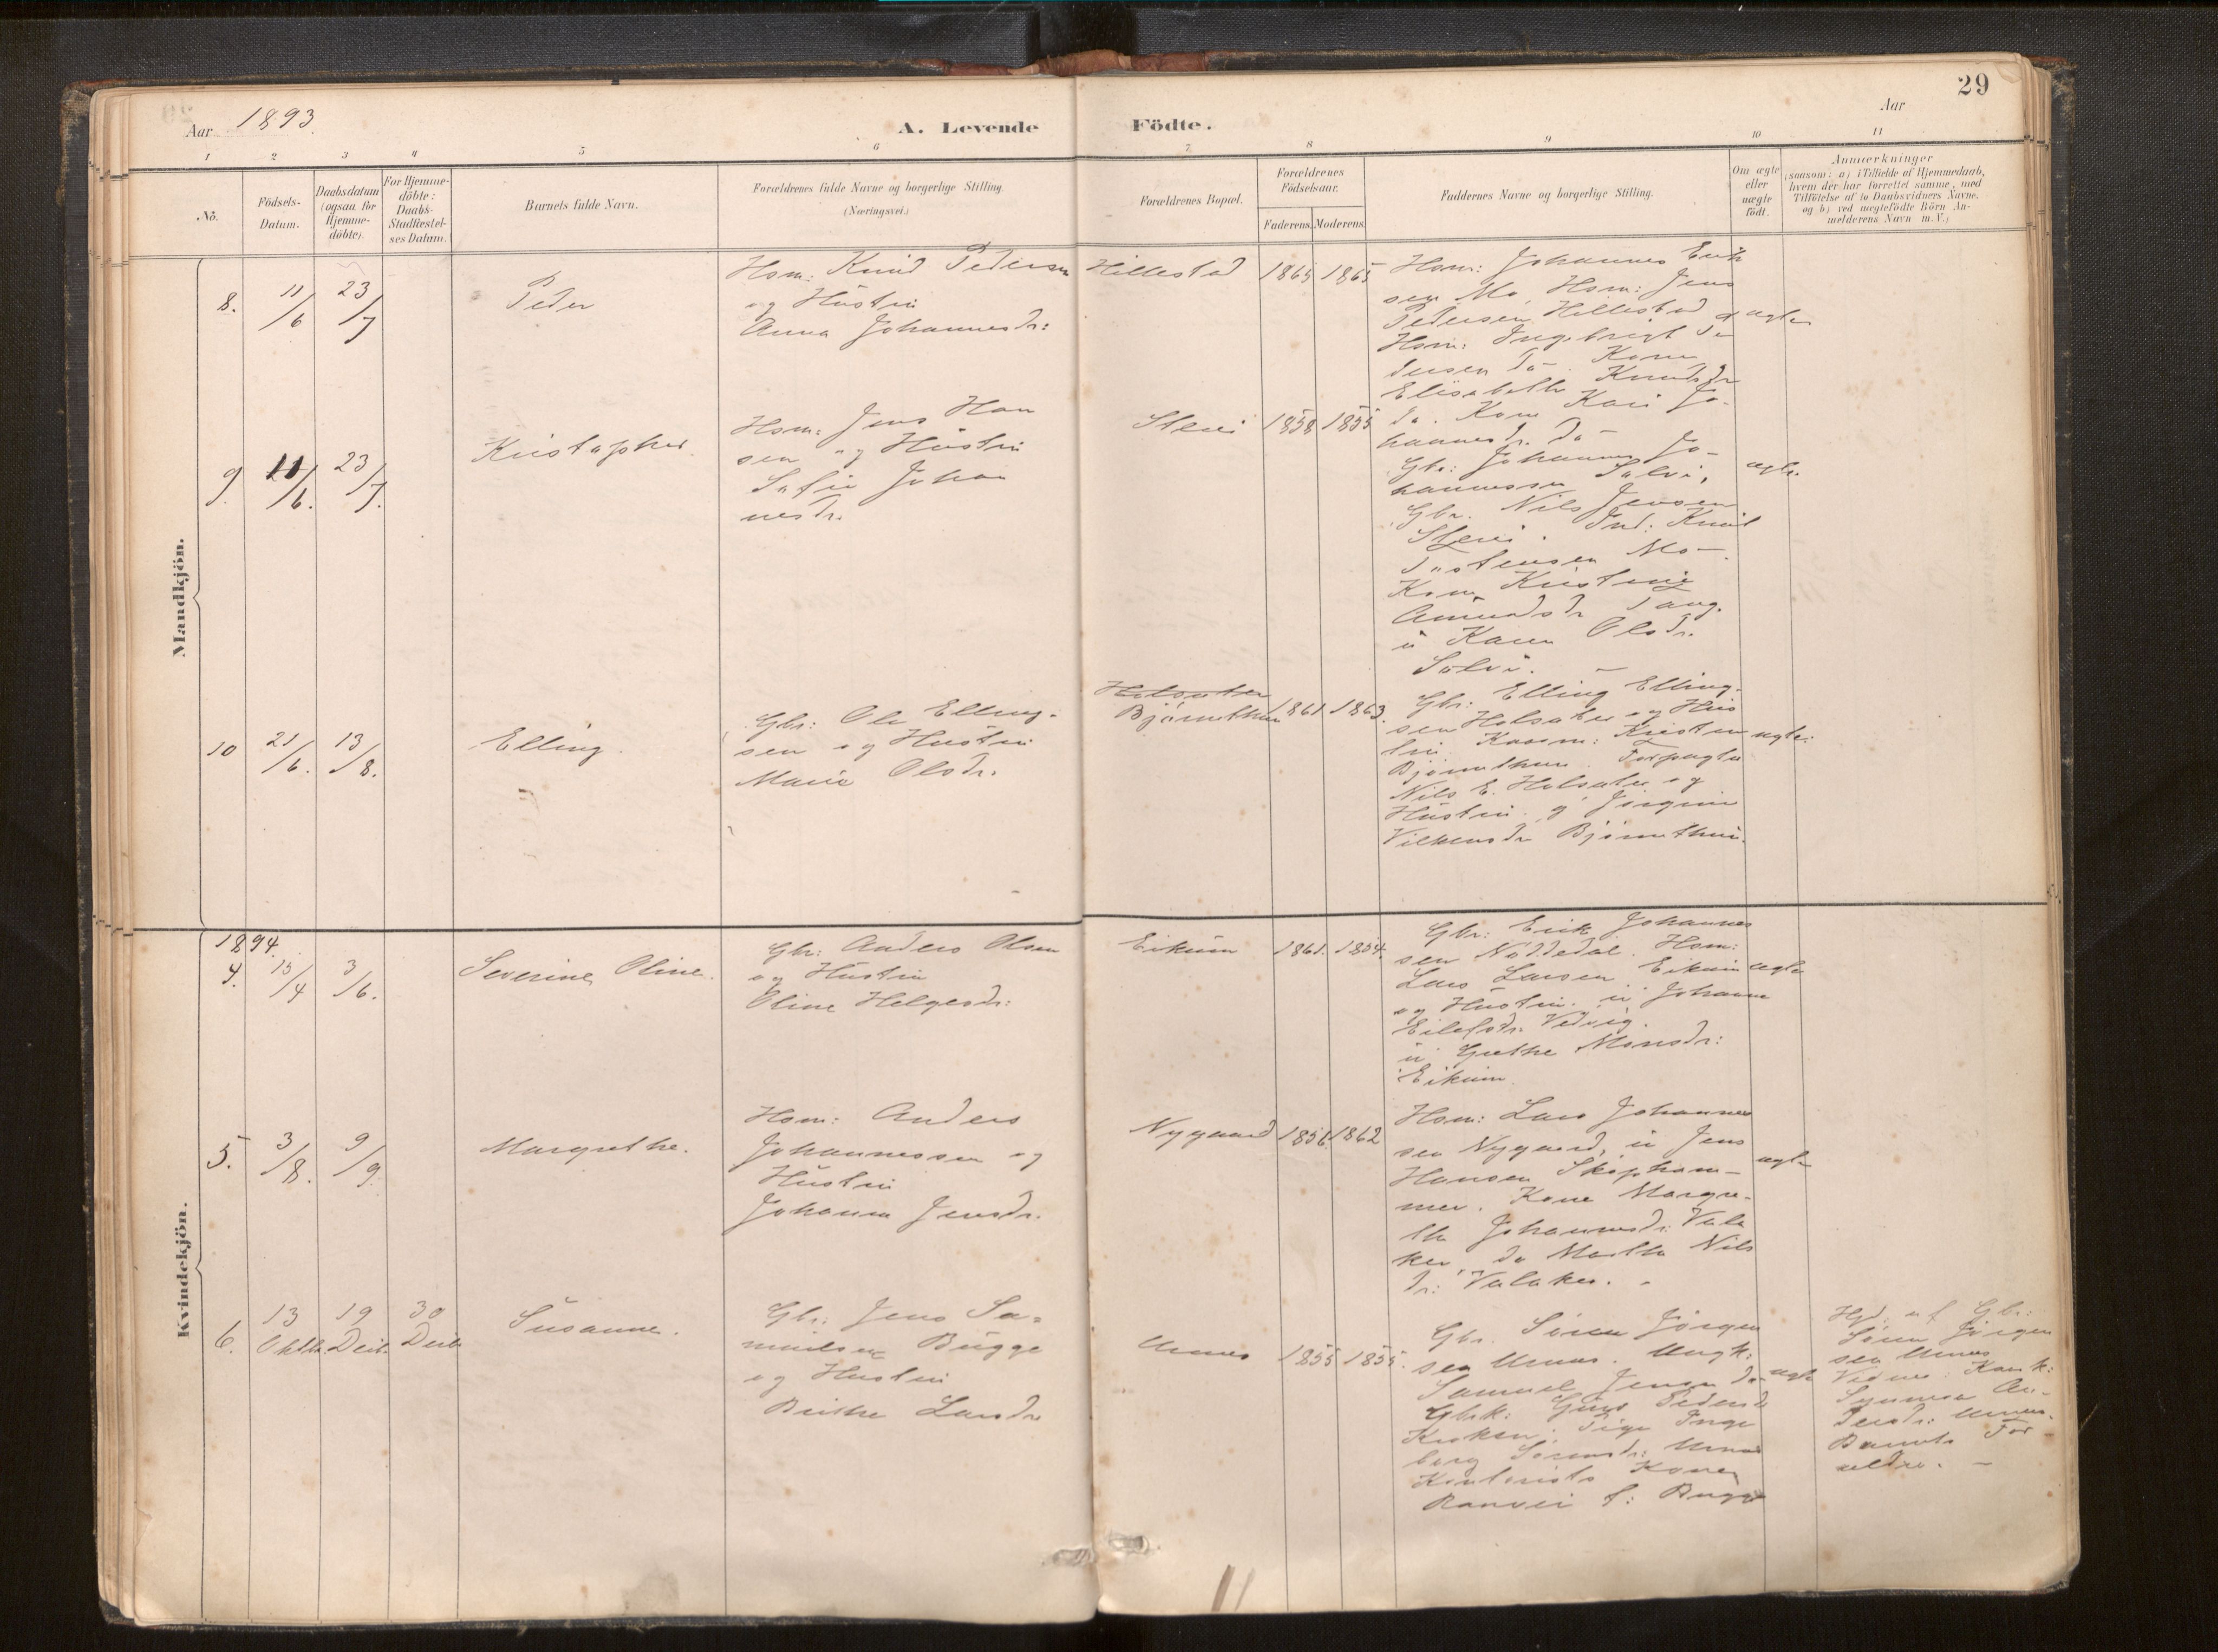 29
Aar 1893.
A. Levende Födte.
Aar
1
2
3
4
5
6
7
8
9
10
11
No.
Födsels-
Datum.
Daabsdatum
(ogsaa for
Hjemme-
döbte).
For Hjemme-
döbte:
Daabs-
Stadfæstel-
ses Datum.
Barnets fulde Navn.
Forældrenes fulde Navne og borgerlige Stilling.
(Næringsvei.)
Forældrenes Bopæl.
Forældrenes
Födselsaar.
Faderens.
Moderens.
Faddernes Navne og borgerlige Stilling.
Om ægte
eller
uægte
födt.
Anmærkninger
(saasom: a) i Tilfælde af Hjemmedaab,
hvem der har forrettet samme, med
Tilföielse af to Daabsvidners Navne,
og b) ved uægtefödte Börn An-
melderens Navn m. V.)
Mandkjön.
8.
11/6
23/7
Peder
Hsm: Knud Pedersen
og Hustru
Anna Johannesdr:
Hillestad
1865
1865
Hsm: Johannes Erik
sen Mo, Hsm: Jens
Pedersen Hillestad
Hsm: Ingebrigt Pe
dersen do. Kone
Elisabeth Knudsdr
do. Kone Kari Jo-
hannesdr. do
ægte
9.
11/6.
23/7.
Kristopher.
Hsm: Jens Han
sen og Hustru
Sofie Johan
nesdr.
Steen
1858
1855
Gbr: Johannes Jo-
hannessen Solvi,
Gbr. Nils Jensen
Knud
Tostensen Mo
Kone Kristine
Amundsdr Tang.
u Karen Olsdr.
Solvi.
ægte.
10
21/6.
13/8.
Elling.
Gbr: Ole Elling-
sen og Hustru
Marie Olsdr.
Holsæter
Bjørnethun
1861
1863.
Gbr: Elling Elling-
sen Holsæter og Hus
tru Kristen
Bjørnethun. Forpagter
Nils E. Holsæter og
Hustru. og Jørgine
Vilhemsdr Bjørnethun.
ægte.
Kvindekjön.
1894.
4.
15/4
3/6.
Severine Oline.
Gbr: Anders Olsen
og Hustru
Oline Helgesdr:
Eikum
1861.
1854.
Gbr: Erik Johannes
sen Noddedal. Hsm:
Lars Larsen Eikum
og Hustru. u Johanne
Eilefsdr. Vedvig.
u Grethe Monsdr:
Eikum
ægte
5.
3/8.
9/9.
Margrethe.
Hsm: Anders
Johannessen og
Hustru
Johanne Jensdr.
Nygaard
1856
1862
Hsm: Lars Johannes
sen Nygaard, u Jens
Hansen Skipham-
mer. Kone Margre-
the Johannesdr: Vala
ker, do Martha Nils
dr: Valaker.
ægte
6.
13
Oktbr.
19
Decbr.
30
Decbr
Susanne.
Gbr: Jens Sa-
muelsen Bugge
og Hustru
Brithe Larsdr
Urnes
1855
1855.
Gbr. Søren Jørgen
sen Urnes. Ungk:
Samuel Jensen do
Gbrk: Guri Pedersdr
Kroken. Pige Inge
borg Sørensdr: Urnes
Kone
Ranvei f: Bugge
ægte
Hjd. af Gbr:
Søren Jørgen
sen Urnes
Vidner:
Synneva An-
dersdr: Urnes.
Barnets For
ældre.
11